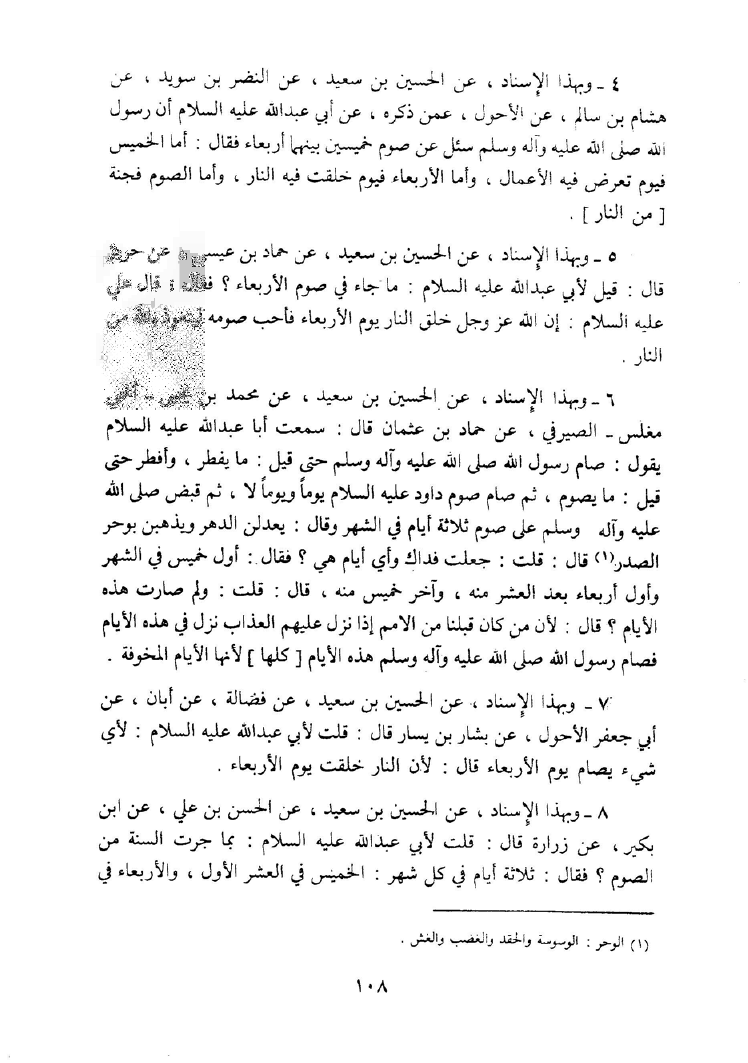 ٤ ـ وبهذا الإسناد ، عن الحسين بن سعيد ، عن النضر بن سويد ، عن
هشام بن سالم ، عن الأحول ، عمن ذكره ، عن أبي عبدالله عليه السلام أن رسول
الله صلى الله عليه وآله وسلم سئل عن صوم خميسين بينهما أربعاء فقال : أما الخميس
فيوم تعرض فيه الأعمال ، وأما الأربعاء فيوم خلقت فيه النار ، وأما الصوم فجنة
[ من النار ] .
٥ ـ وبهذا الإسناد ، عن الحسين بن سعيد ، عن حماد بن عيسى ، عن حريز
قال : قيل لأبي عبدالله عليه السلام : ما جاء في صوم الأربعاء ؟ فقال : قال علي
عليه السلام : إن الله عز وجل خلق النار يوم الأربعاء فأحب صومه ليتعوذ بالله من
النار .
٦ ـ وبهذا الإسناد ، عن الحسين بن سعيد ، عن محمد بن يحيى ـ أخي
مغلس ـ الصيرفي ، عن حماد بن عثمان قال : سمعت أبا عبدالله عليه السلام
يقول : صام رسول الله صلى الله عليه وآله وسلم حتى قيل : ما يفطر ، وأفطر حتى
قيل : ما يصوم ، ثم صام صوم داود عليه السلام يوماً ويوماً لا ، ثم قبض صلى الله
عليه وآله وسلم على صوم ثلاثة أيام في الشهر وقال : يعدلن الدهر ويذهبن بوحر
الصدر(١) قال : قلت : جعلت فداك وأي أيام هي ؟ فقال : أول خميس في الشهر
وأول أربعاء بعد العشر منه ، وآخر خميس منه ، قال : قلت : ولم صارت هذه
الأيام ؟ قال : لأن من كان قبلنا من الامم إذا نزل عليهم العذاب نزل في هذه الأيام
فصام رسول الله صلى الله عليه وآله وسلم هذه الأيام [ كلها ] لأنها الأيام المخوفة .
٧ ـ وبهذا الإسناد ، عن الحسين بن سعيد ، عن فضالة ، عن أبان ، عن
أبي جعفر الأحول ، عن بشار بن يسار قال : قلت لأبي عبدالله عليه السلام : لأي
شيء يصام يوم الأربعاء قال : لأن النار خلقت يوم الأربعاء .
٨ ـ وبهذا الإسناد ، عن الحسين بن سعيد ، عن الحسن بن علي ، عن ابن
بكير ، عن زرارة قال : قلت لأبي عبدالله عليه السلام : بما جرت السنة من
الصوم ؟ فقال : ثلاثة أيام في كل شهر : الخميس في العشر الأول ، والأربعاء في
(١) الوحر : الوسوسة والحقد والغضب والغش .
١٠٨